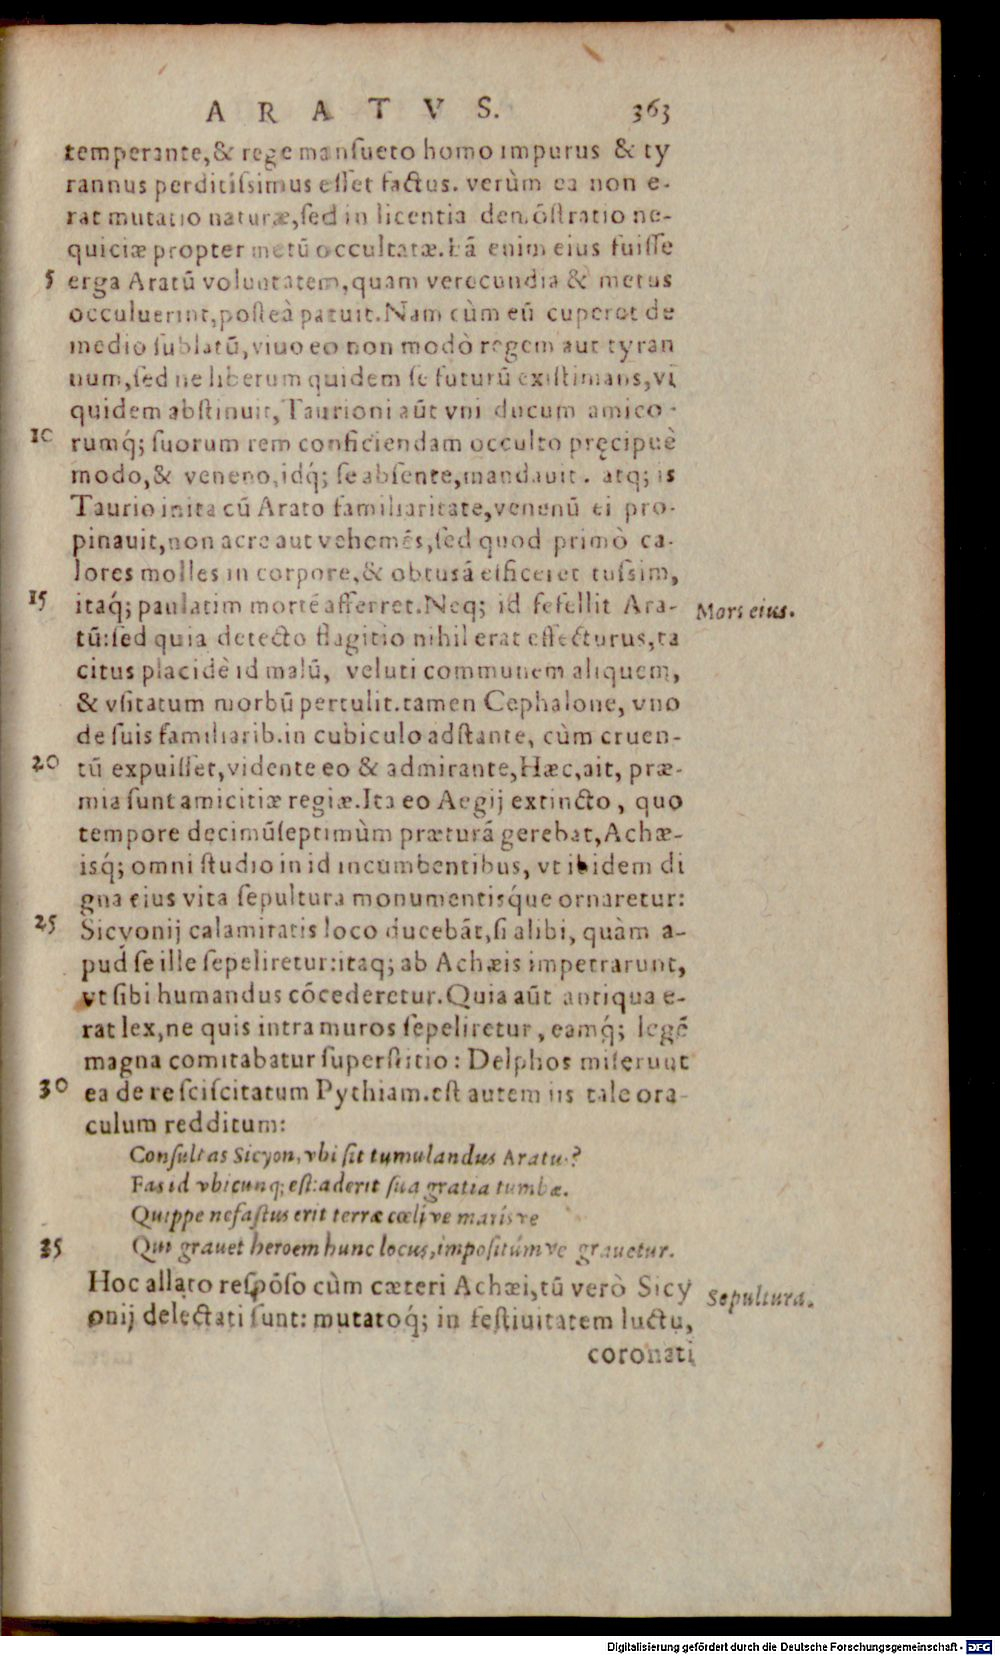 ARATVS. 363
temperante,& rege mansueto homo impurus & ty
rannus perditissimus esset factus. verùm ea non e-
rat mutatio naturæ,sed in licentia demōstratio ne-
quiciæ propter metū occultatæ.Eā enim eius fuisse
5 erga Aratū voluntatem,quam verecundia & metus
occuluerint,posteà patuit.Nam cùm eū cuperet de
medio sublatū,viuo eo non modò regem aut tyran
num,sed ne liberum quidem se futurū existimans,vi
quidem abstinuit,Taurioni aūt vni ducum amico-
10 rumq́; suorum rem conficiendam occulto pręcipuè
modo,& veneno,idq́; se absente,mandauit. atq; is
Taurio inita cū Arato familiaritate,venenū ei pro-
pinauit,non acre aut vehemēs,sed quod primò ca-
lores molles in corpore,& obtusā efficeret tussim,
15 itaq́; paulatim mortē afferret.Neq; id fefellit Ara- Mors eius.
tū:sed quia detecto flagitio nihil erat effecturus,ta
citus placidè id malū, veluti communem aliquem,
& vsitatum morbū pertulit.tamen Cephalone, vno
de suis familiarib.in cubiculo adstante, cùm cruen-
20 tū expuisset,vidente eo & admirante,Hæc,ait, præ-
mia sunt amicitiæ regiæ.Ita eo Aegij extincto, quo
tempore decimūseptimùm præturā gerebat,Achæ-
isq́; omni studio in id incumbentibus, vt ibidem di
gna eius vita sepultura monumentisq́ue ornaretur:
25 Sicyonij calamitatis loco ducebāt,si alibi, quàm a-
pud se ille sepeliretur:itaq; ab Achæis impetrarunt,
vt sibi humandus cōcederetur.Quia aūt antiqua e-
rat lex,ne quis intra muros sepeliretur, eamq́; legē
magna comitabatur superstitio: Delphos miserunt
30 ea de re sciscitatum Pythiam.est autem iis tale ora-
culum redditum:
Consultas Sicyon, vbi sit tumulandus Aratus?
Fas id vbicunq; est:aderit sua gratia tumbæ.
Quippe nefastus erit terræ cœlive marisve
35 Qui grauet heroem hunc locus,impositúmve grauetur.
Hoc allato respōso cùm cæteri Achæi,tū verò Sicy Sepultura.
onij delectati sunt: mutatoq́; in festiuitatem luctu,
coronati
Digitalisierung gefördert durch die Deutsche Forschungsgemeinschaft - DFG